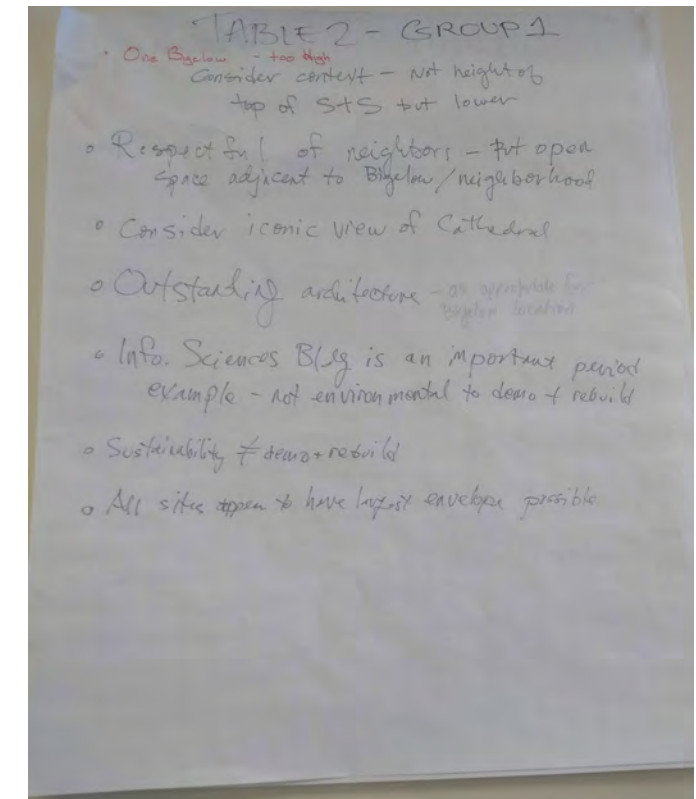 TABLE 2 - GROUP 1
• One Bigelow - too high
Consider context - Not height of
top of S+S but lower
o Respectful of neighbors - Put open
space adjacent to Bigelow/neighborhood
o Consider iconic view of Cathedral
o Outstanding architecture - as appropriate for
Bigelow location
o Info. Sciences Bldg is an important period
example - not environmental to demo + rebuild
o Sustainability ≠ demo + rebuild
o All sites appear to have largest envelope possible